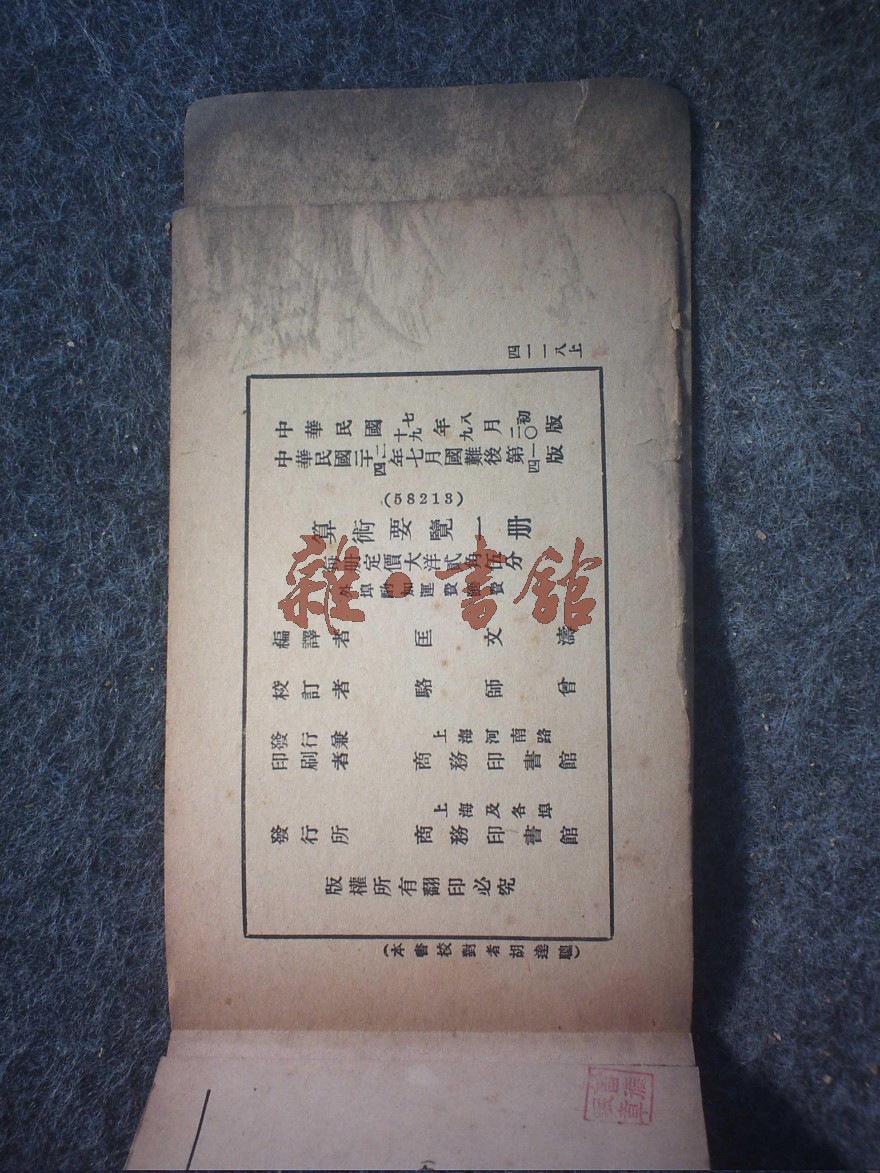 四一一八上
中華民國十七九年八九月初二〇版
中華民國二十二四年七月國難後第一四版
(58218)
算術要覽一册
每册定價大洋貳角伍分
外埠酌加運費匯費
編譯者 匡文濤
校訂者 駱師曾
發行兼 上海河南路
印刷者 商務印書館
上海及各埠
發行所 商務印書館
版權所有翻印必究
(本書校對者胡達聰)
雜·書館